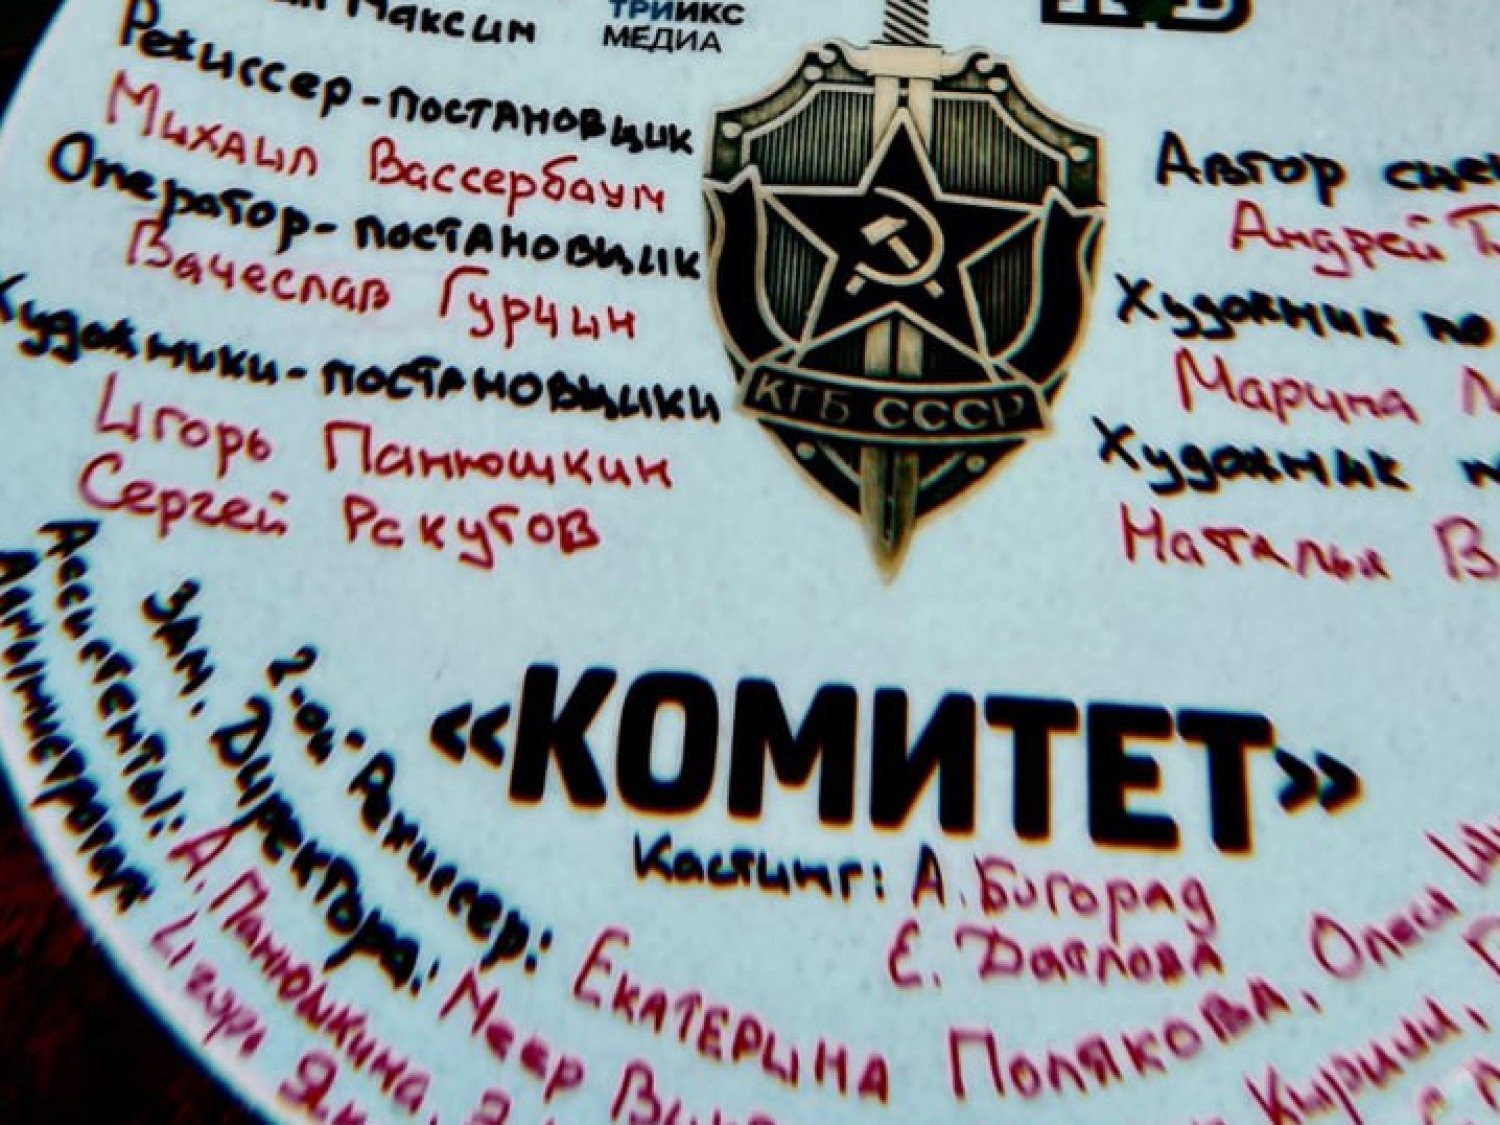 Максим
ТРИИКС
МЕДИА
Режиссер-постановщик
Михаил Вассербаум
Оператор-постановщик
Вачеслав Гурчин
Художники-постановщики
Игорь Панюшкин
Сергей Ракутов
КГБ СССР
Автор
Андрей
Художник по
Марина
Художник
Наталья
«КОМИТЕТ»
Кастинг: А. Богорад
Е. Даглова
2-ой Режиссер: Екатерина Полякова, Олеся
Зам. Директора: Меер
Ассистенты: А. Панюшкина,
Игорь
Кирилл,